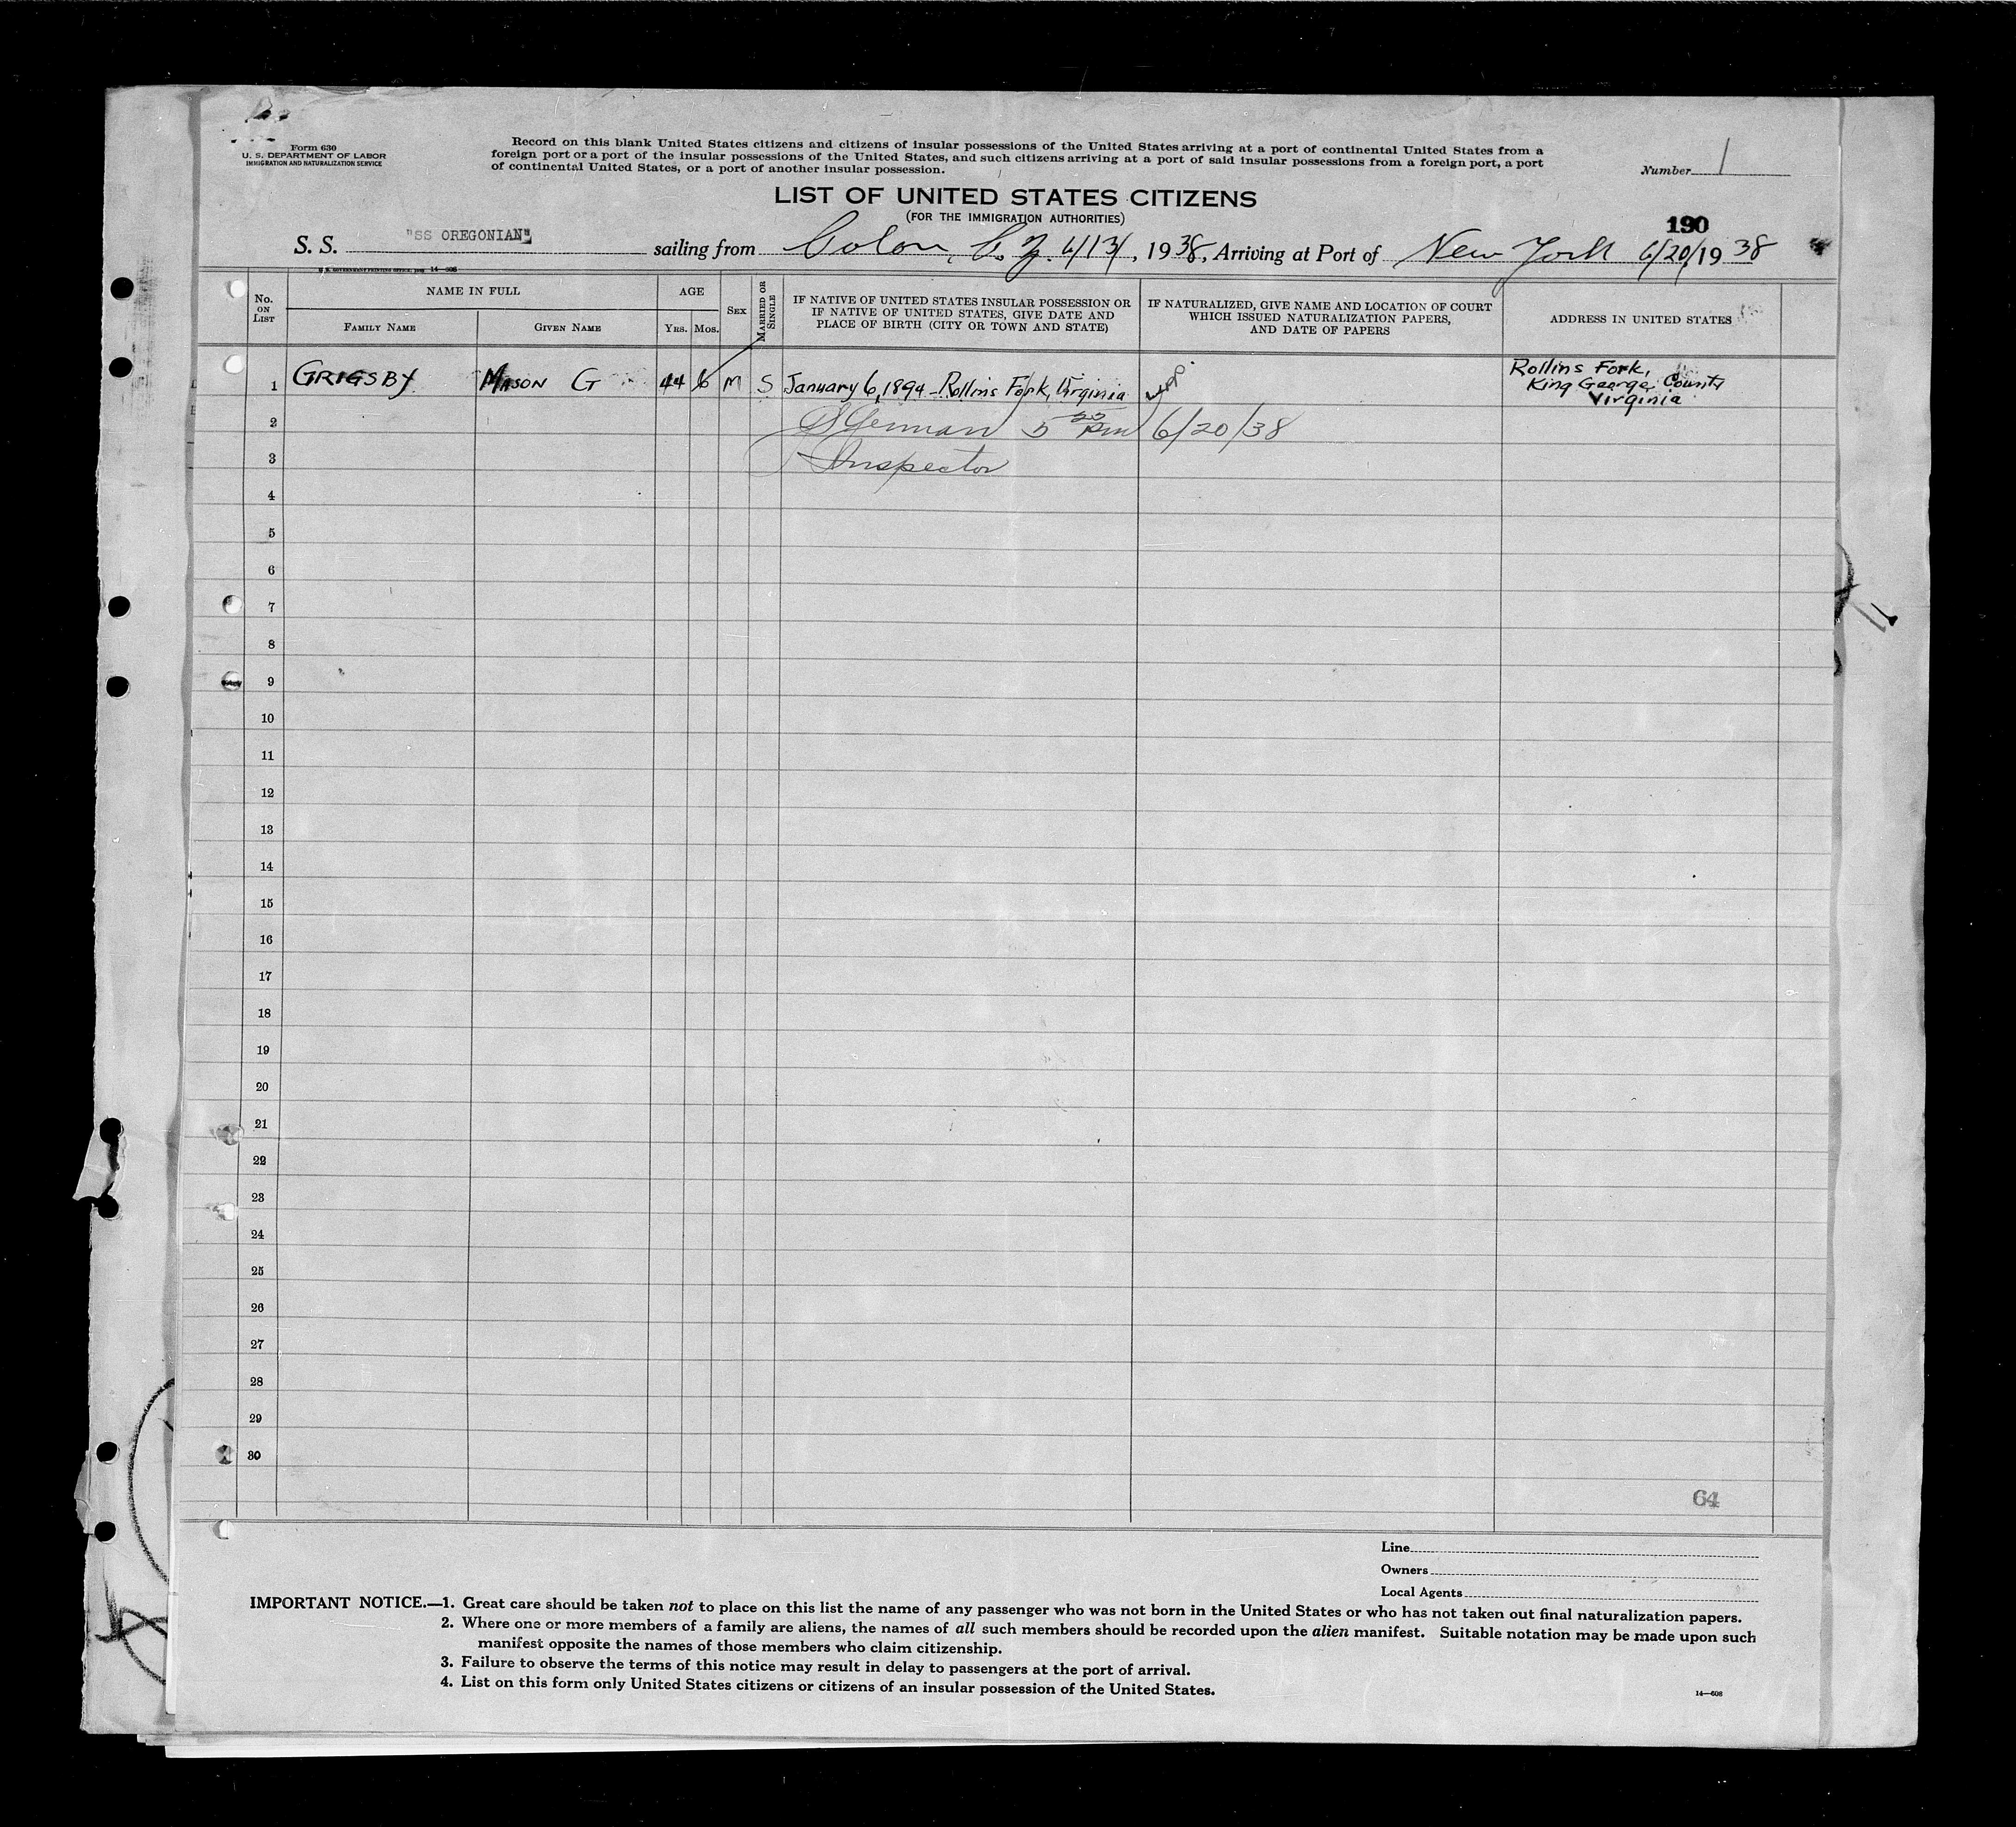 Form 630
U. S. DEPARTMENT OF LABOR
IMMIGRATION AND NATURALIZATION SERVICE
Record on this blank United States citizens and citizens of insular possessions of the United States arriving at a port of continental United States from a
foreign port or a port of the insular possessions of the United States, and such citizens arriving at a port of said insular possessions from a foreign port, a port
of continental United States, or a port of another insular possession.
Number 1
LIST OF UNITED STATES CITIZENS
(FOR THE IMMIGRATION AUTHORITIES)
190
S. S. "SS OREGONIAN" sailing from Colon, C. Z. 6/13/, 1938, Arriving at Port of New York 6/20/1938
No. ON LIST
NAME IN FULL
FAMILY NAME
GIVEN NAME
AGE
YRS.
MOS.
SEX
MARRIED OR SINGLE
IF NATIVE OF UNITED STATES INSULAR POSSESSION OR
IF NATIVE OF UNITED STATES, GIVE DATE AND
PLACE OF BIRTH (CITY OR TOWN AND STATE)
IF NATURALIZED, GIVE NAME AND LOCATION OF COURT
WHICH ISSUED NATURALIZATION PAPERS,
AND DATE OF PAPERS
ADDRESS IN UNITED STATES
1 GRIGSBY MASON G 44 6 M S January 6, 1894 - Rollins Fork, Virginia
Rollins Fork,
King George County
Virginia
2 5 50 pm 6/20/38
3 Inspector
4
5
6
7
8
9
10
11
12
13
14
15
16
17
18
19
20
21
22
23
24
25
26
27
28
29
30
64
Line
Owners
Local Agents
IMPORTANT NOTICE.—1. Great care should be taken not to place on this list the name of any passenger who was not born in the United States or who has not taken out final naturalization papers.
2. Where one or more members of a family are aliens, the names of all such members should be recorded upon the alien manifest. Suitable notation may be made upon such
manifest opposite the names of those members who claim citizenship.
3. Failure to observe the terms of this notice may result in delay to passengers at the port of arrival.
4. List on this form only United States citizens or citizens of an insular possession of the United States.
14—608